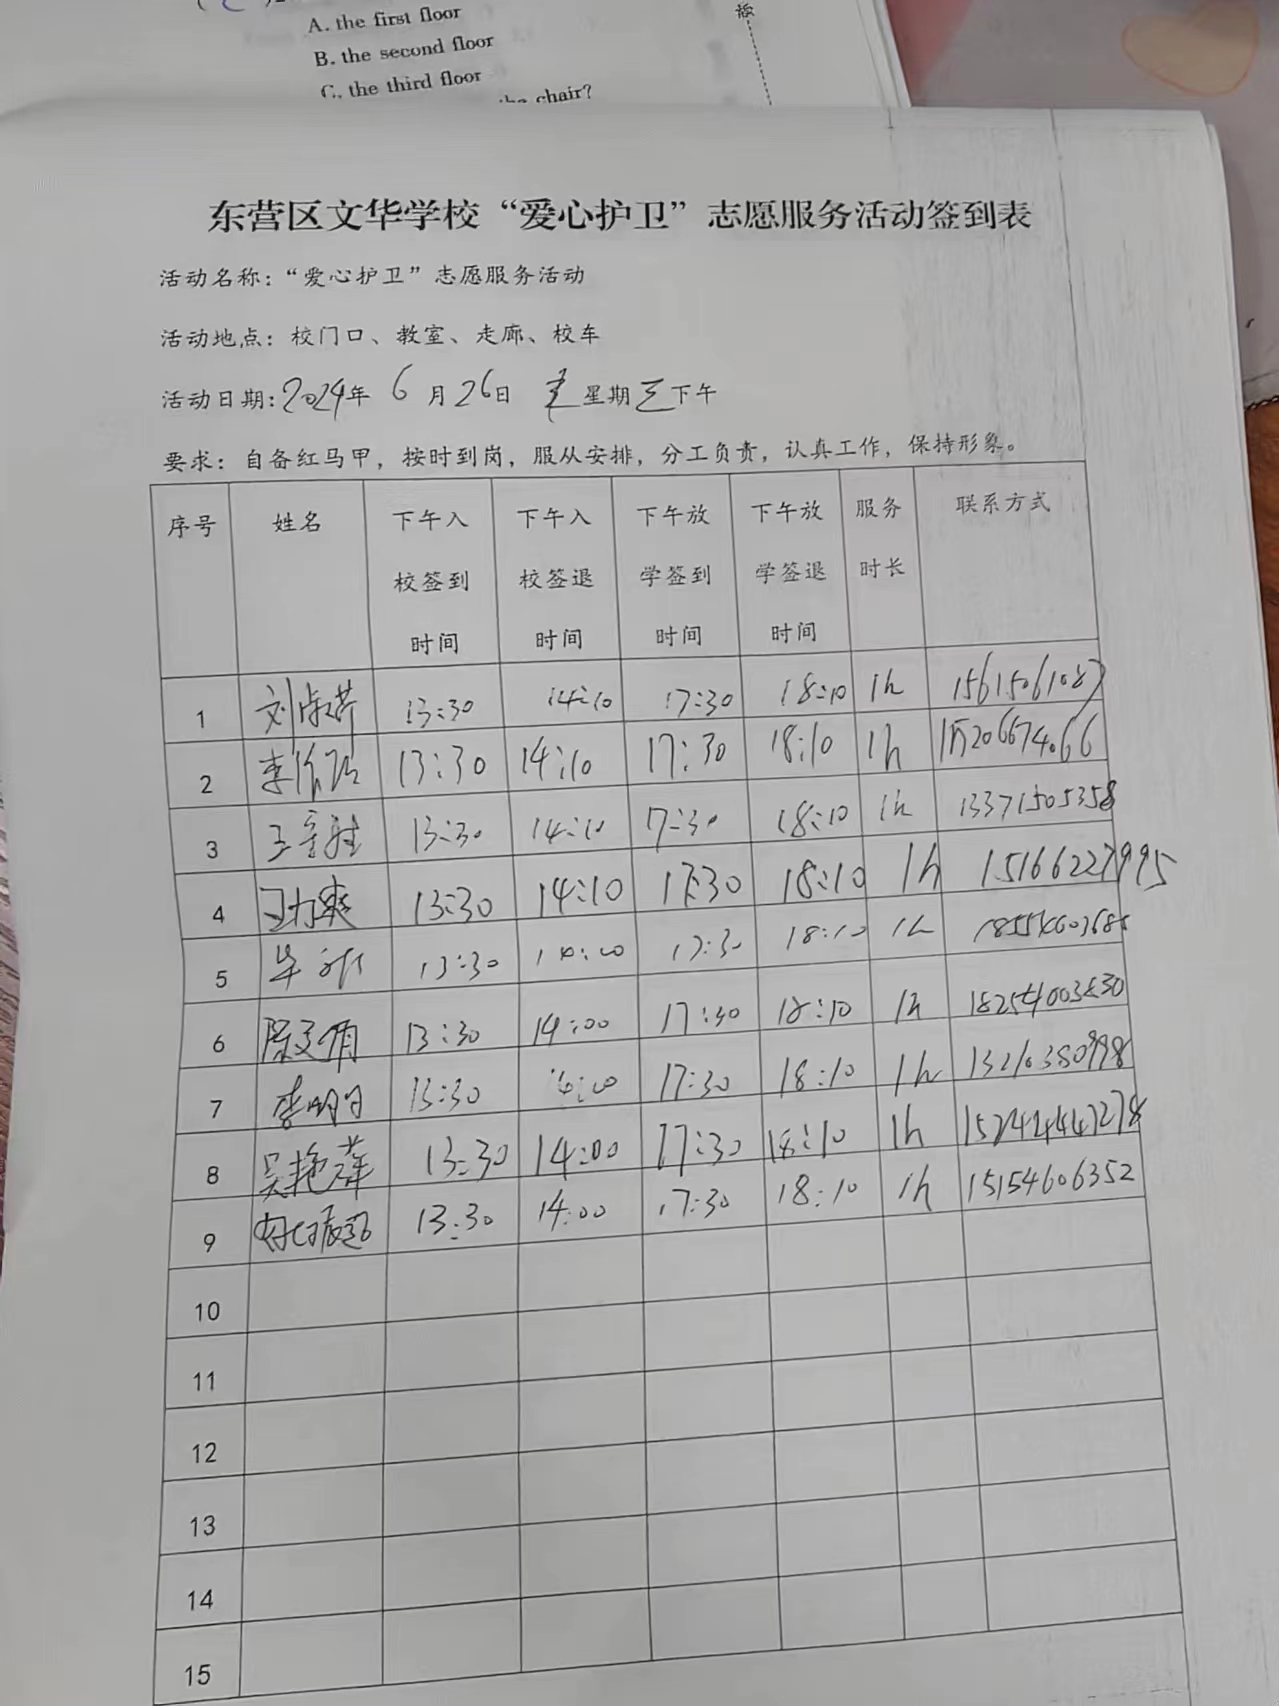 A. the first floor
B. the second floor
C. the third floor
the chair?
东营区文华学校“爱心护卫”志愿服务活动签到表
活动名称：“爱心护卫”志愿服务活动
活动地点：校门口、教室、走廊、校车
活动日期：2024年 6月26日 星期三下午
要求：自备红马甲，按时到岗，服从安排，分工负责，认真工作，保持形象。
序号 姓名 下午入校签到时间 下午入校签退时间 下午放学签到时间 下午放学签退时间 服务时长 联系方式
1 13:30 14:10 17:30 18:10 1h 15615061087
2 13:30 14:10 17:30 18:10 1h 15206674066
3 13:30 14:10 17:30 18:10 1h 13371505358
4 13:30 14:10 17:30 18:10 1h 15166227995
5 13:30 17:30 18:10 1h
6 13:30 14:00 17:30 18:10 1h
7 李明日 13:30 17:30 18:10 1h
8 吴艳萍 13:30 14:00 17:30 18:10 1h
9 13:30 14:00 17:30 18:10 1h 15154606352
10
11
12
13
14
15